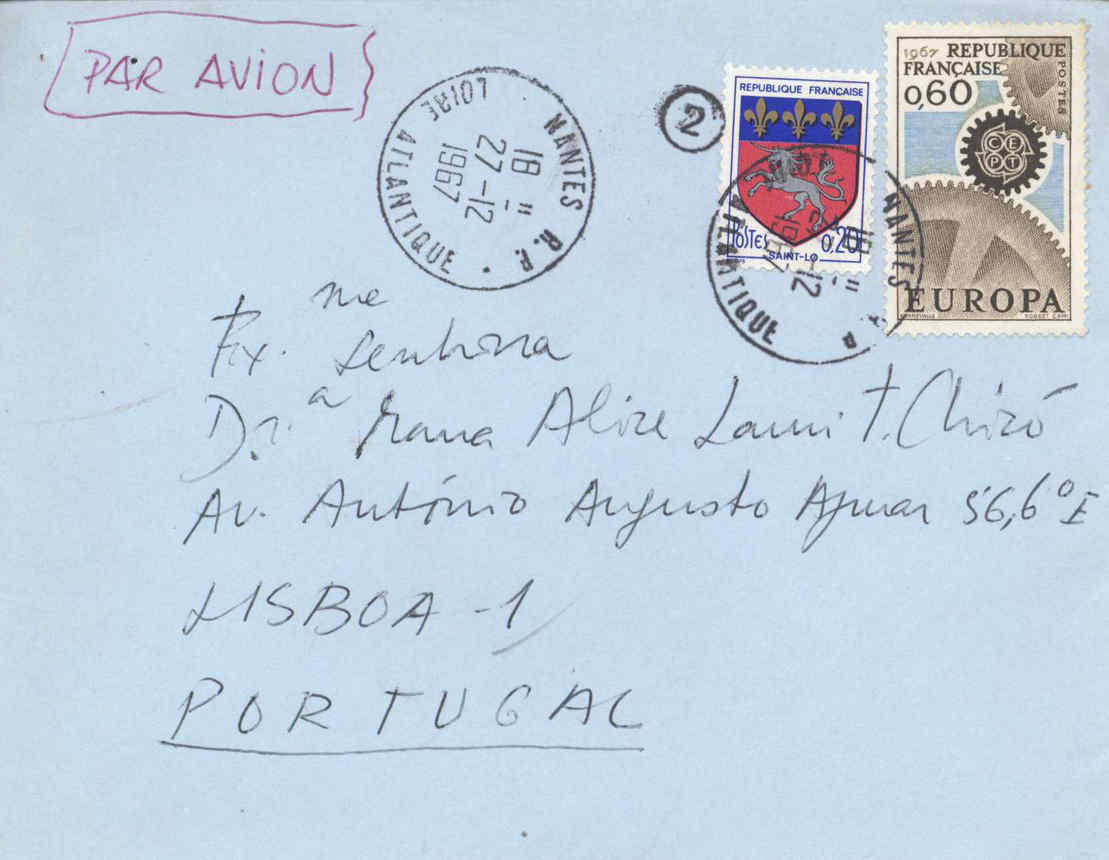 PAR AVION
NANTES R.P.
18 H
27-12
1967
LOIRE ATLANTIQUE
2
REPUBLIQUE FRANÇAISE
POSTES 0,20
SAINT-LO
1967 REPUBLIQUE
FRANÇAISE
0,60
POSTES
CEPT
EUROPA
NANTES
18 H
12
1967
ATLANTIQUE
Ex.me Senhora
Dr.a Maria Alice T. Chicó
Av. António Augusto Aguiar 56,6º E
LISBOA-1
PORTUGAL